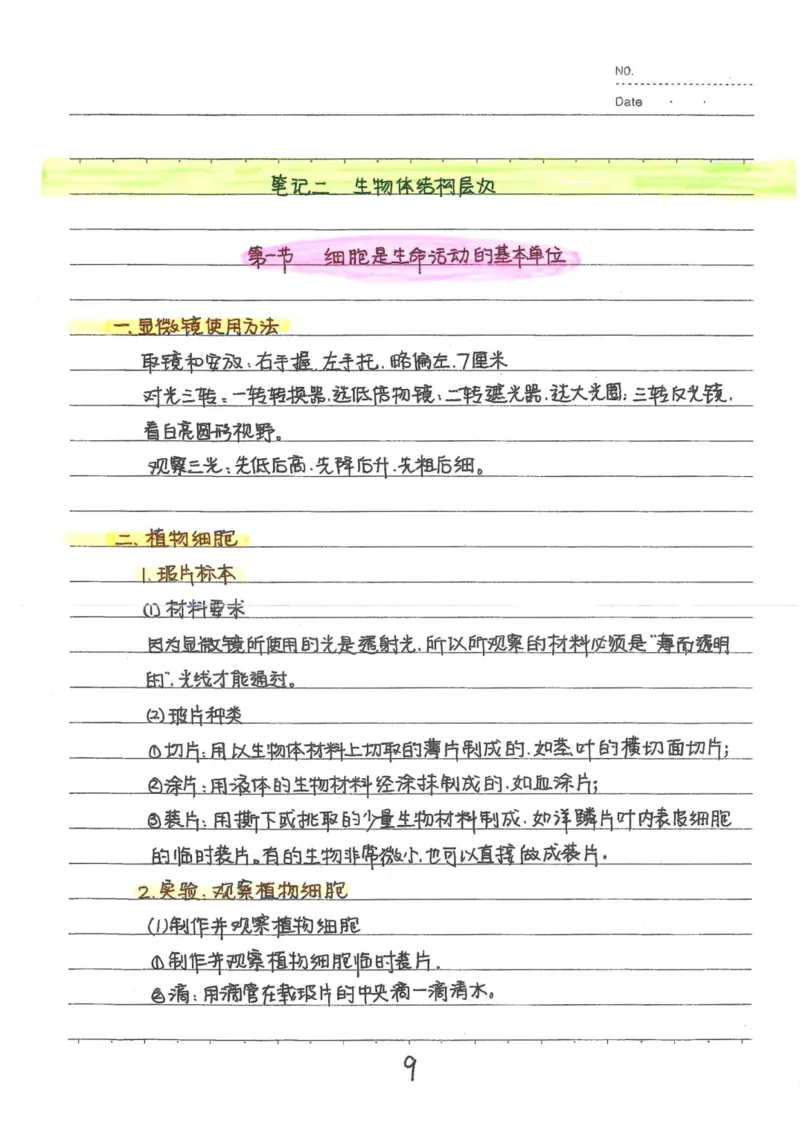 NO.
Date
笔记二 生物体结构层次
第一节 细胞是生命活动的基本单位
一.显微镜使用方法
取镜和安放:右手握.左手托.略偏左.7厘米
对光三转:一转转换器.选低倍物镜;二转遮光器.选大光圈;三转反光镜.
看白亮圆形视野。
观察三光:先低后高.先降后升.先粗后细。
二.植物细胞
1.玻片标本
(1)材料要求
因为显微镜所使用的光是透射光.所以所观察的材料必须是“薄而透明
的”.光线才能通过。
(2)玻片种类
①切片:用以生物体材料上切取的薄片制成的.如茎.叶的横切面切片;
②涂片:用液体的生物材料经涂抹制成的.如血涂片;
③装片:用撕下或挑取的少量生物材料制成.如洋鳞片叶内表皮细胞
的临时装片。有的生物非常微小.也可以直接做成装片.
2.实验:观察植物细胞
(1)制作并观察植物细胞
①制作并观察植物细胞临时装片.
②滴:用滴管在载玻片的中央滴一滴清水。
9